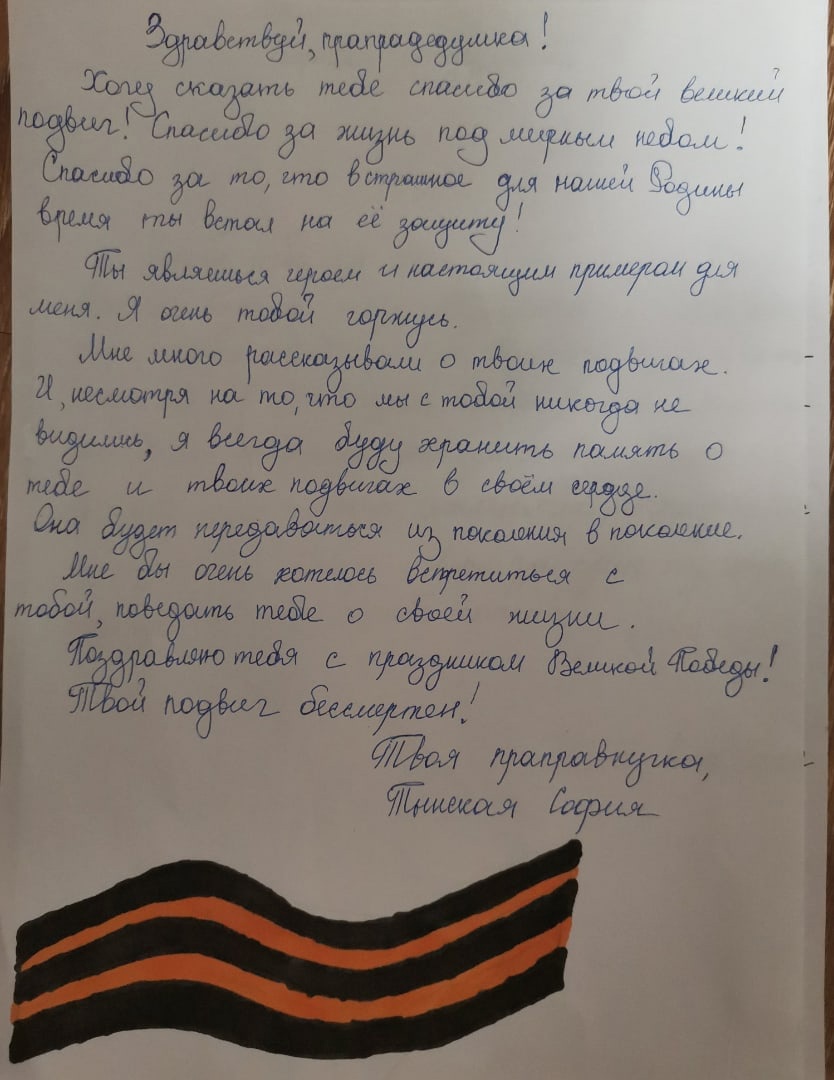 Здравствуй, прапрадедушка!
Хочу сказать тебе спасибо за твой великий
подвиг! Спасибо за жизнь под мирным небом!
Спасибо за то, что в страшное для нашей Родины
время ты встал на её защиту!
Ты являешься героем и настоящим примером для
меня. Я очень тобой горжусь.
Мне много рассказывали о твоих подвигах.
И, несмотря на то, что мы с тобой никогда не
виделись, я всегда буду хранить память о
тебе и твоих подвигах в своём сердце.
Она будет передаваться из поколения в поколение.
Мне бы очень хотелось встретиться с
тобой, поведать тебе о своей жизни.
Поздравляю тебя с праздником Великой Победы!
Твой подвиг бессмертен!
Твоя праправнучка,
София